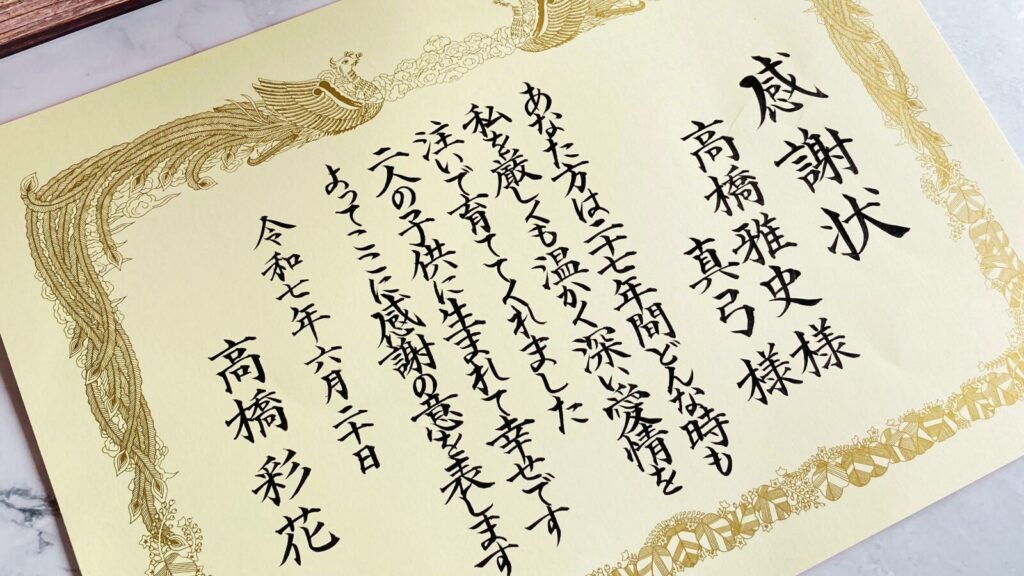 感謝状
高橋雅史様
真弓様
あなた方は二十七年間どんな時も
私を厳しくも温かく深い愛情を
注いで育ててくれました
二人の子供に生まれて幸せです
よってここに感謝の意を表します
令和七年六月二十日
高橋彩花